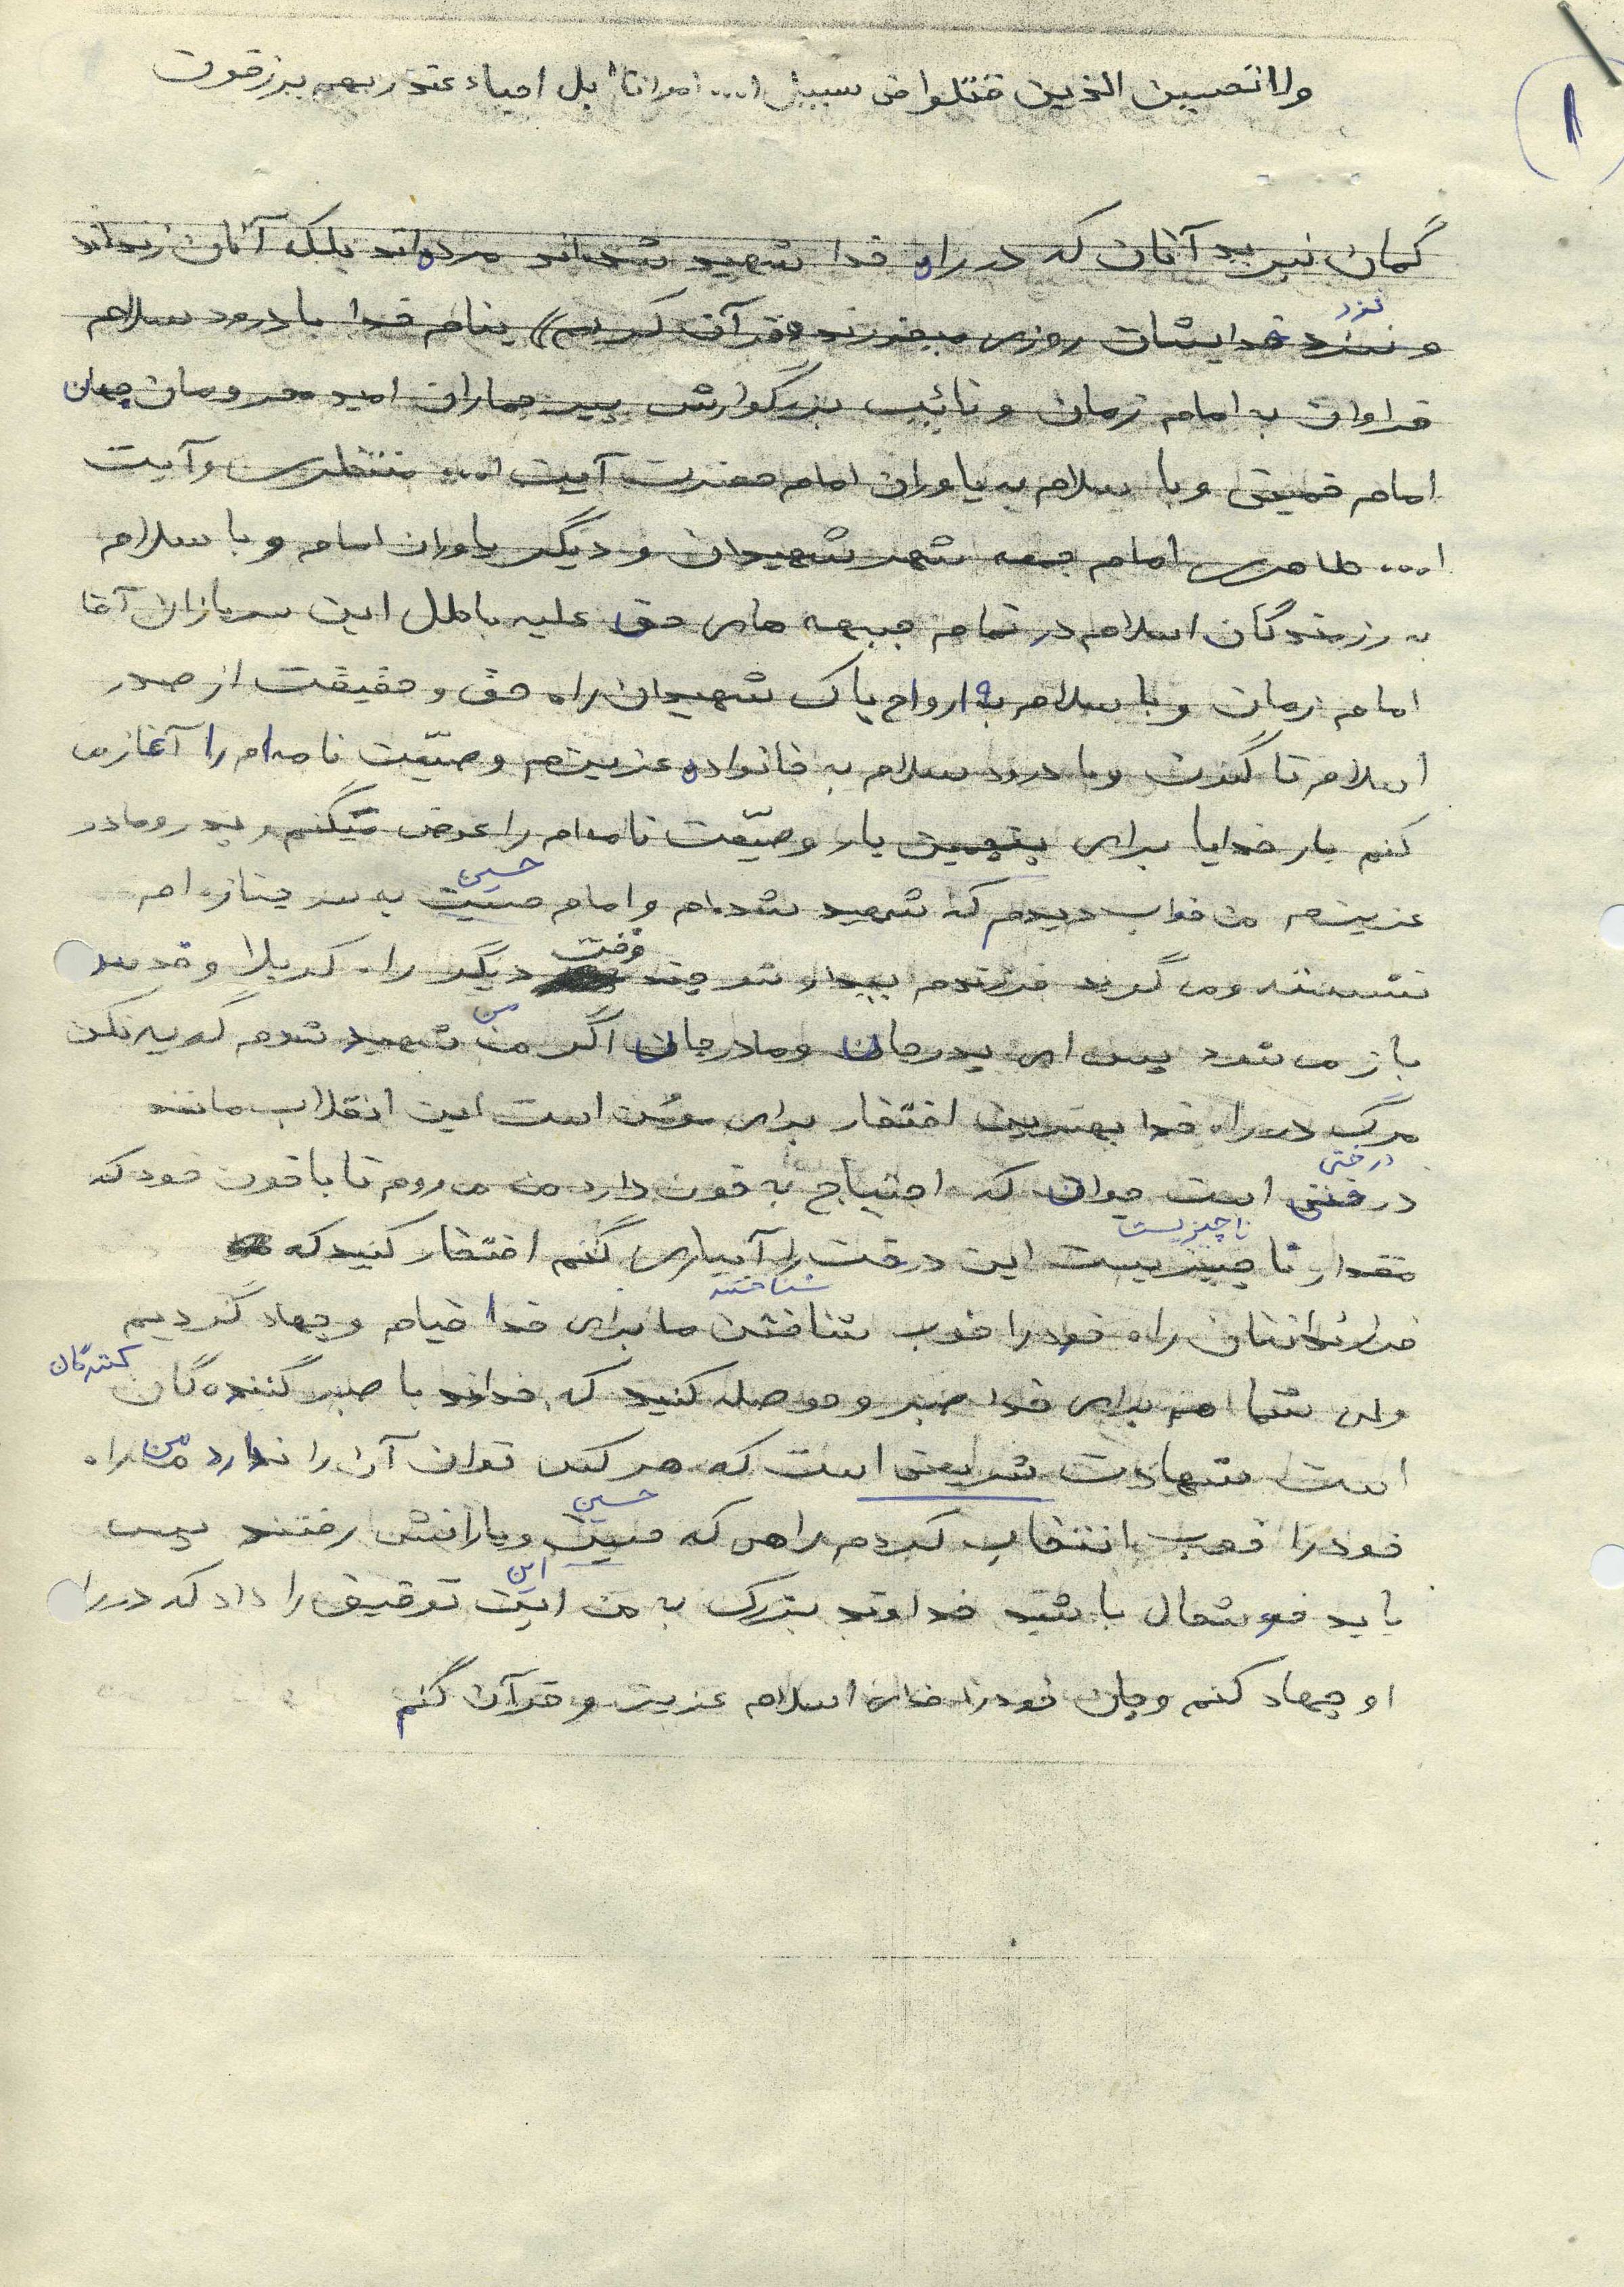 ۱
ولا تحسبن الذين قتلوا فی سبیل ا... امواتاً بل احیاء عند ربهم یرزقون
گمان نبرید آنان که در راه خدا شهید شده‌اند مرده‌اند بلکه آنان زنده‌اند
نزد
و نزد خدایشان روزی میخورند «قرآن کریم» بنام خدا با درود سلام
فراوان به امام زمان و نائب بزرگوارش پیر جماران امید محرومان جهان
امام خمینی و با سلام به یاوران امام حضرت آیت ا... منتظری و آیت
ا... طاهری امام جمعه شهر شهیدان و دیگر یاوران امام و با سلام
به رزمندگان اسلام در تمام جبهه های حق علیه باطل این سربازان آقا
امام زمان و با سلام به ارواح پاک شهیدان راه حق و حقیقت از صدر
اسلام تا کنون و با درود سلام به خانواده عزیزم وصیّت نامه‌ام را آغاز می
کنم بار خدایا برای پنجمین بار وصیّت نامه‌ام را عوض میکنم، پدر و مادر
حسین
عزیزم من خواب دیدم که شهید شده‌ام و امام حسین به سر جنازه ام
وقت
نشسته و می گوید فرزندم بیدار شو چند دیگر راه کربلا و قدس
من
باز می شود پس ای پدرجان و مادرجان اگر من شهید شدم گریه نکن
مرگ در راه خدا بهترین افتخار برای مومن است این انقلاب مانند
درختی
درختی است جوان که احتیاج به خون دارد من می روم تا با خون خود که
ناچیزیست
مقدار ناچیزیست این درخت را آبیاری کنم افتخار کنید که
شناختند
فرزندانتان راه خود را خوب شناختن ما برای خدا قیام و جهاد کردیم
کنندگان
ولی شما هم برای خدا صبر و حوصله کنید که خداوند با صبر کننده گان
من
است شهادت شربتی است که هر کس توان آن را ندارد من راه
حسین
خود را خوب انتخاب کردم راهی که حسین و یارانش رفتند پس
این
باید خوشحال باشید خداوند بزرگ به من این توفیق را داد که در را
او جهاد کنم و جان خود را فدای اسلام عزیز و قرآن کنم